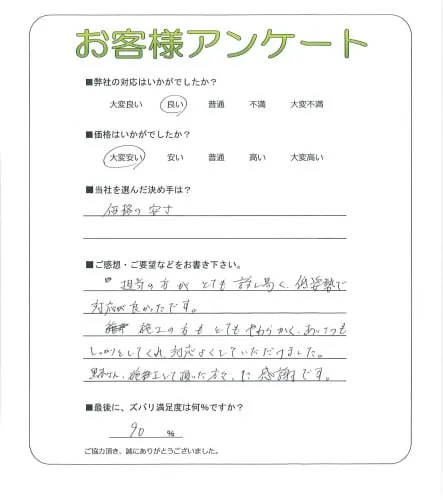 お客様アンケート
■弊社の対応はいかがでしたか？
大変良い 良い 普通 不満 大変不満
■価格はいかがでしたか？
大変安い 安い 普通 高い 大変高い
■当社を選んだ決め手は？
価格の安さ
■ご感想・ご要望などをお書き下さい。
担当の方がとても話し易く、低姿勢で
対応が良かったです。
施工の方もとてもやわらかく、あいさつも
しっかりとしてくれ、対応よくしていただけました。
施工して頂いた方々、感謝です。
■最後に、ズバリ満足度は何％ですか？
90 ％
ご協力頂き、誠にありがとうございました。